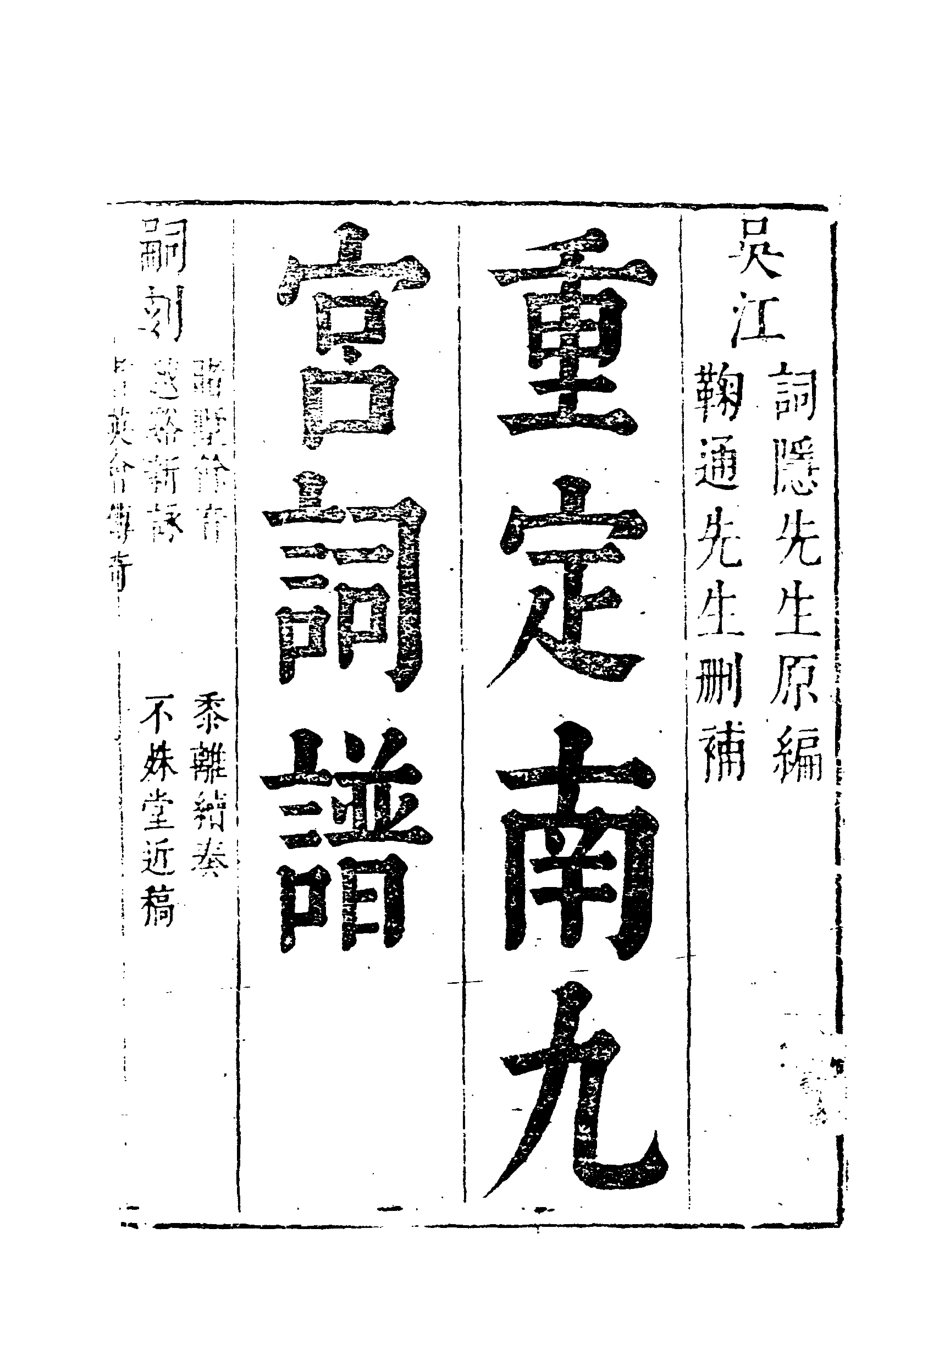 吳江
詞隱先生原編
鞠通先生刪補
重定南九
宮詞譜
嗣刻
賭墅餘音
黍離續奏
越谿新詠
不姝堂近稿
耆英會傳奇